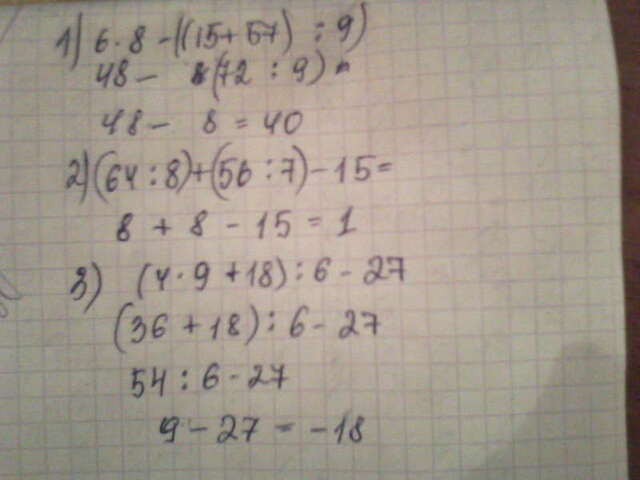 1) 6·8-((15+57) : 9)
48- (72 : 9) =
48- 8=40
2) (64:8)+(56:7)-15=
8+8-15=1
3) (4·9+18):6-27
(36+18):6-27
54:6-27
9-27=-18